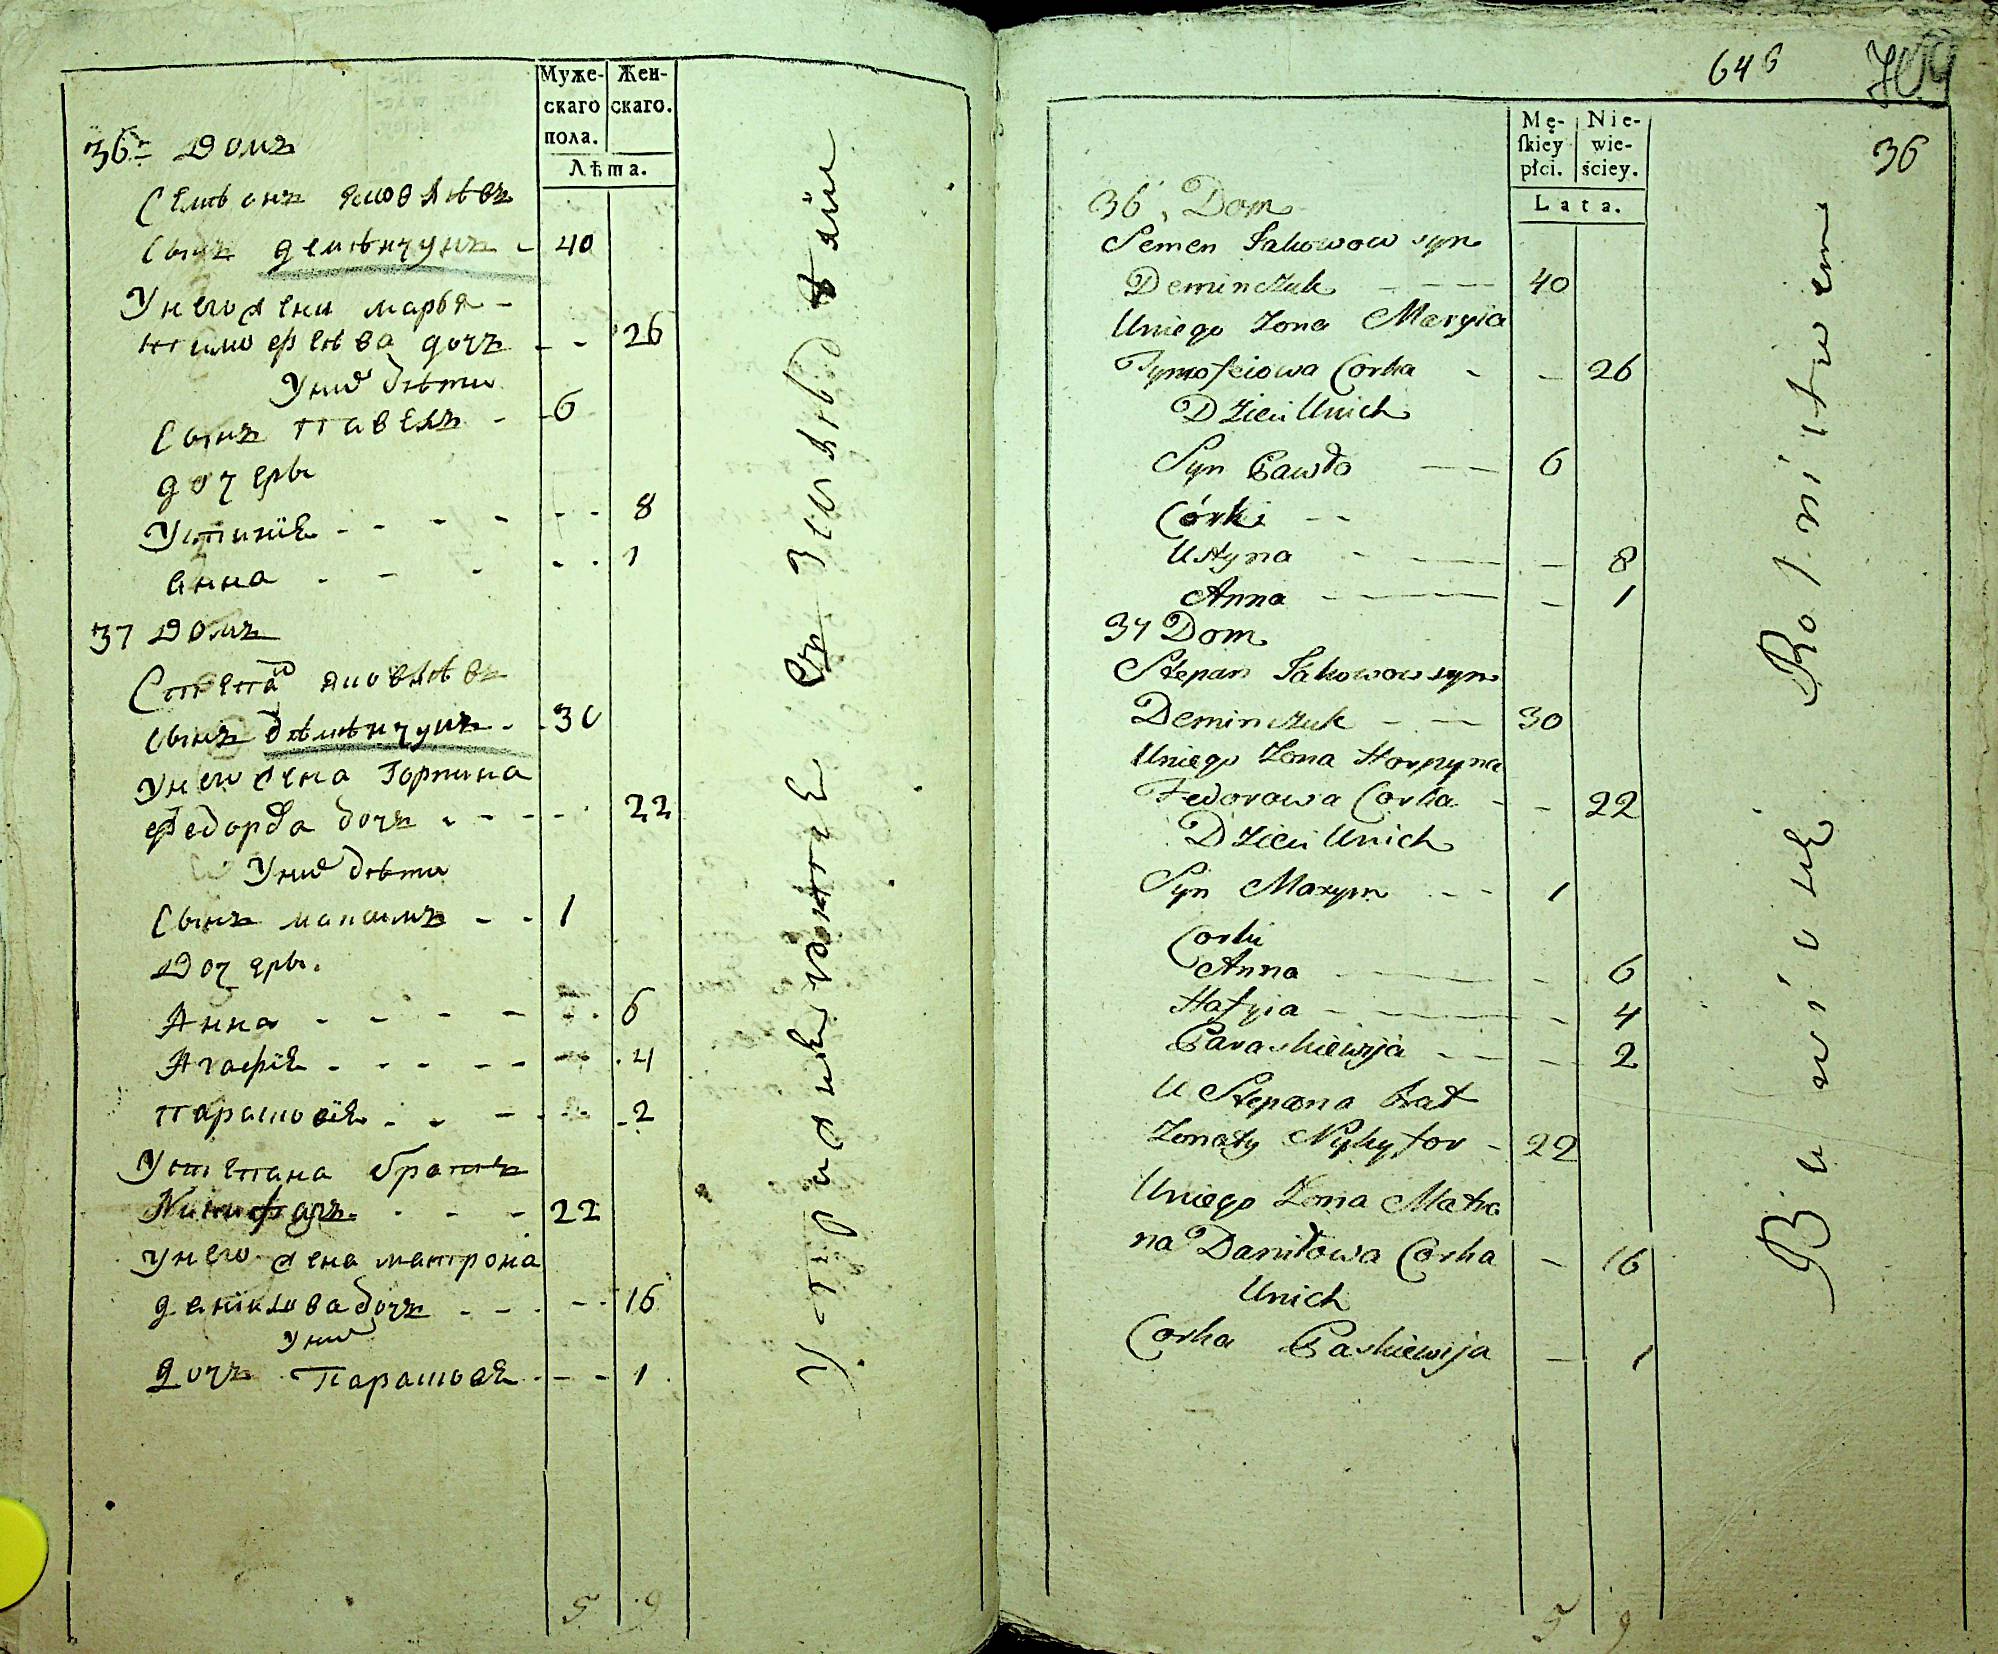 Муже-
скаго
пола.
Жен-
скаго.
Лѣта.
36й Домъ
Семѣонъ яковлѣвъ
сынъ демѣнчукъ - 40
У него жена марья -
тимофѣева дочь - - 26
У них дѣти
Сынъ павелъ - - 6
дочеры
Устинiя - - - - - - 8
анна - - - - - 1
37 Домъ
Степан яковлѣвъ
сынъ дѣмѣнчукъ - - 30
У него жена Горпина
федорова дочь - - - - - 22
У них дѣти
Сынъ максимъ - - 1
Дочеры.
Анна - - - - - - 6
Агафiя - - - - - - 4
парасковiя - - - - - 2
У степана братъ
Никифоръ - - - 22
У него жена матрона
данилова дочь - - - - - 16
У них
дочь Парасковя - - - 1
5 9
646
36
Mę-
ſkiey
płci.
Nie-
wie-
ściey.
Lata.
36. Dom
Semen Jakowow syn
Deminczuk - - - 40
Uniego Zona Maryia
Tymofeiowa Corka - - 26
Dzieci Unich
Syn Pawło - - 6
Córki - -
Ustyna - - - - 8
Anna - - - - 1
37 Dom
Stepan Jakowow syn
Deminczuk - - 30
Uniego Zona Horpyna
Fedorowa Corka - - 22
Dzieci Unich
Syn Maxym - - 1
Corki
Anna - - - - 6
Hafyia - - - - 4
Paraskiewija - - - 2
U Stepana brat
Zonaty Nykyfor - 22
Uniego Zona Matro
na Daniłowa Corka - 16
Unich
Corka Paskiewija - 1
5 9